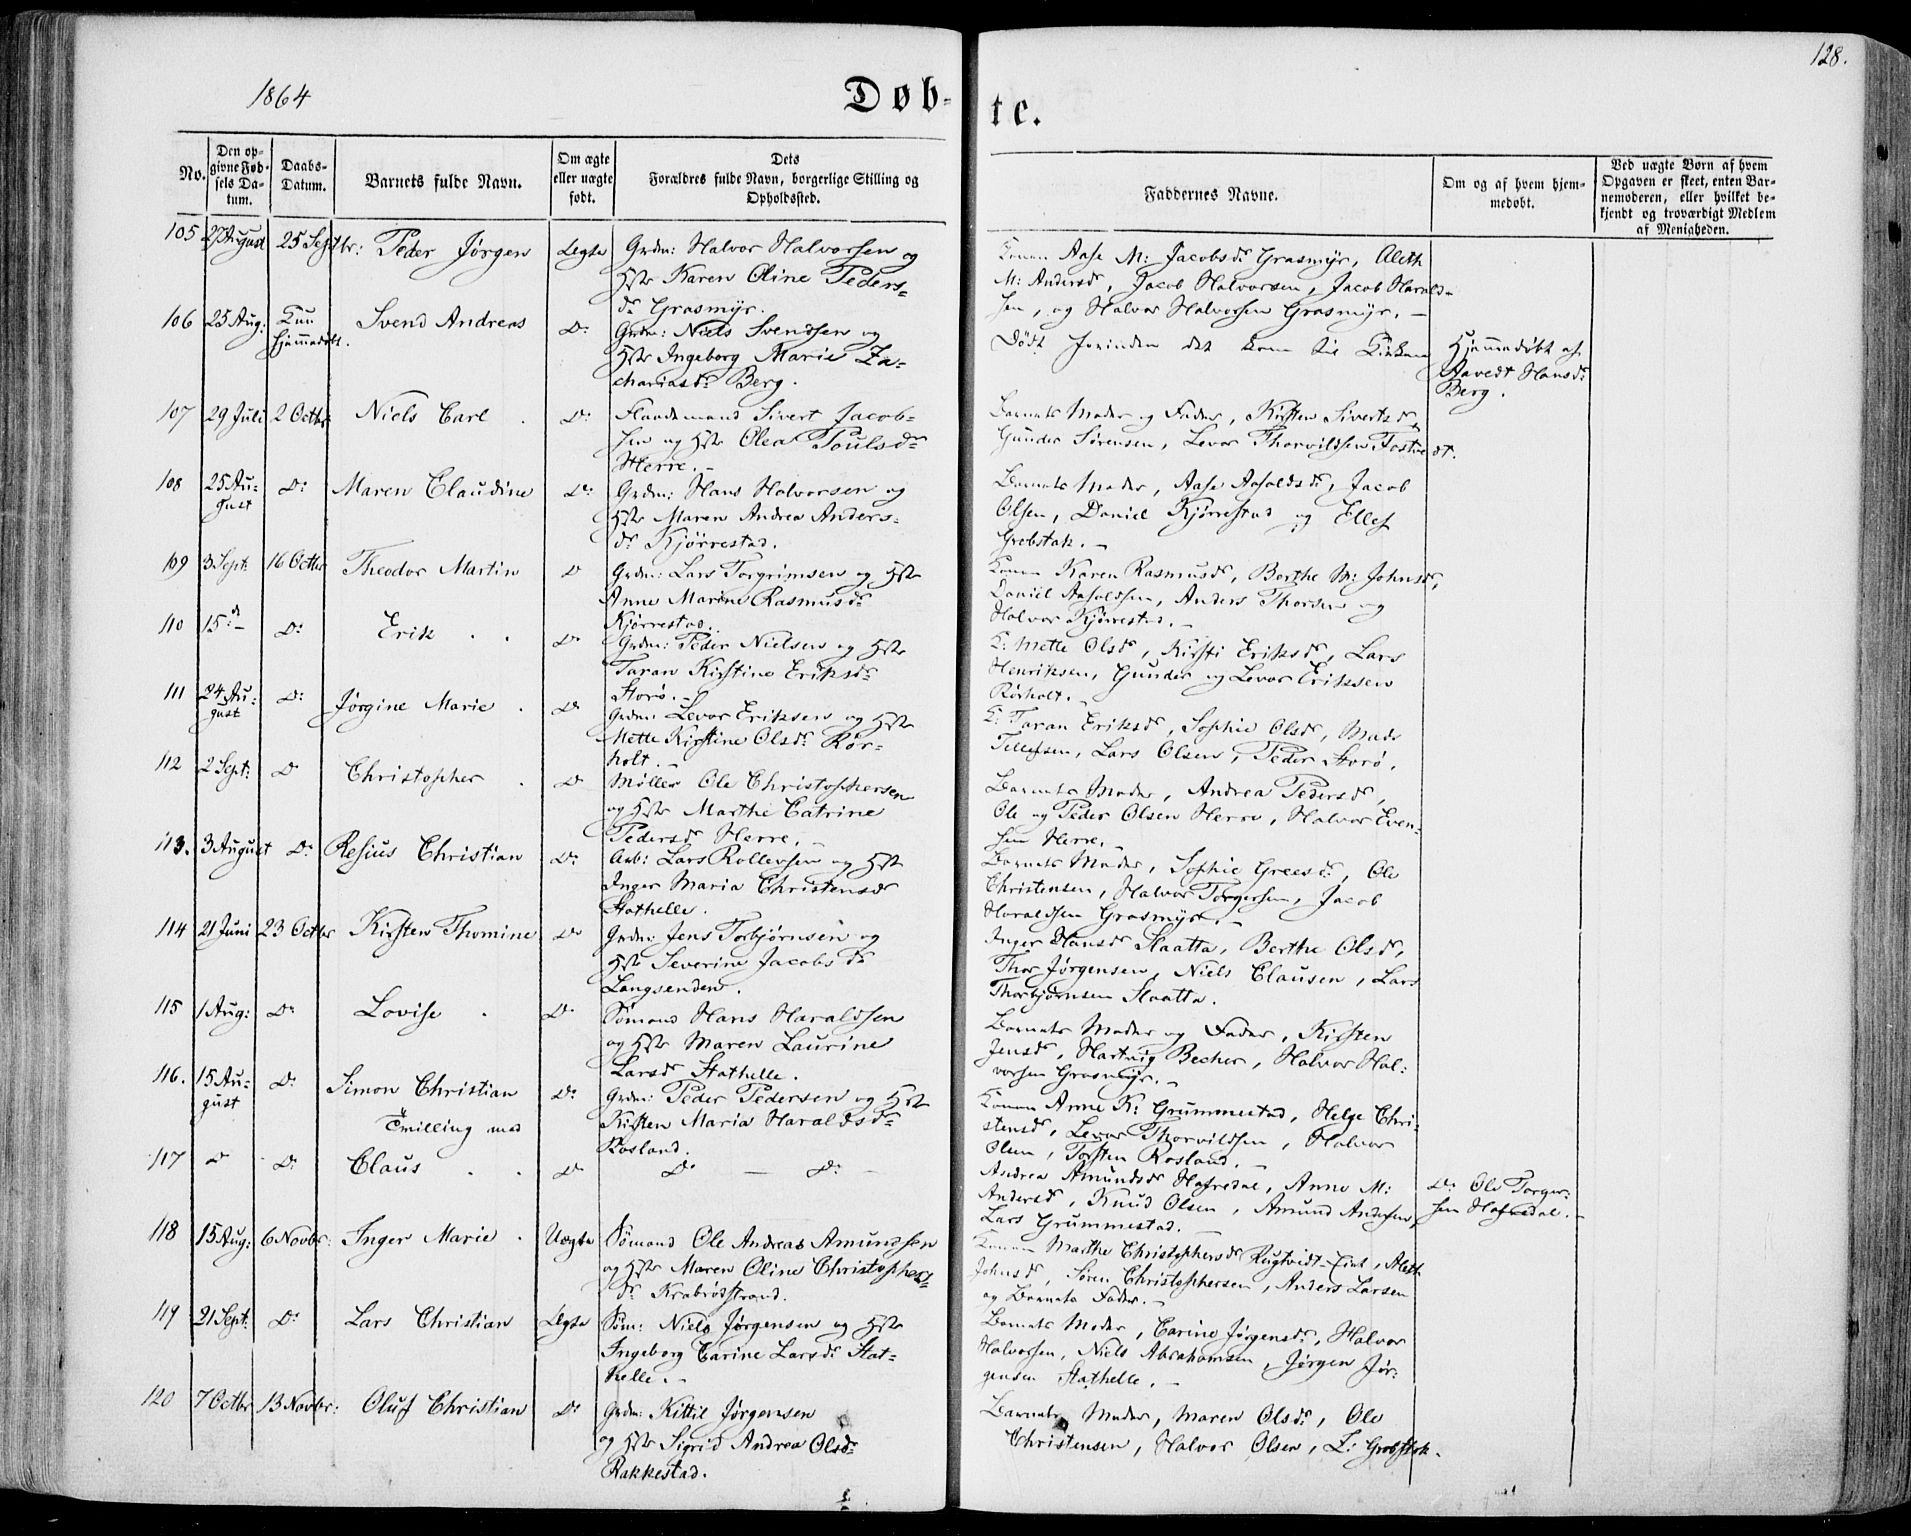 1864
Døb-
te.
128.
No.
Den op-
givne Fød-
sels Da-
tum.
Daabs-
Datum.
Barnets fulde Navn.
Om ægte
eller uægte
født.
Dets
Forældres fulde Navn, borgerlige Stilling og
Opholdssted.
Faddernes Navne.
Om og af hvem hjem-
medøbt.
Ved uægte Børn af hvem
Opgaven er skeet, enten Bar-
nemoderen, eller hvilket be-
kjendt og troværdigt Medlem
af Menigheden.
105 27 August 25 Septbr: Peder Jørgen Ægte Grdm: Halvor Halvorsen og
Hst Karen Oline Peders-
dr Grasmyr.
Konen Aase M: Jacobsdr Grasmyr, Aleth
M: Andersdr, Jacob Halvorsen, Jacob Harald-
sen, og Halvor Halvorsen Grasmyr. –
106 25 Aug: Kun
hjemmedøbt. Svend Andreas Do Grdm: Niels Svendsen og
Hst Ingeborg Marie Za-
chariasdr Berg.
Dødt forinden det kom til Kirken
Hjemmedøbt af
Hansdr
Berg.
107 29 Juli 2 Octbr Niels Carl . Do Flaademand Sivert Jacob-
sen og Hst Olea Poulsdr
Herre. –
Barnets Moder og Fader, Kirsten Sivertsdr,
Gunder Sørensen, Levor Thorvildsen Tostvedt.
108 25 Au-
gust Do Maren Claudine Do Grdm: Hans Halvorsen og
Hst Maren Andrea Anders-
dr Kjørrestad.
Barnets Moder, Aase Aasoldsdr, Jacob
Olsen, Daniel Kjørrestad og Ellef
Grobstok. –
109 3 Sept: 16 Octbr Theodor Martin Do Grdm: Lars Torgrimsen og Hst
Anne Marine Rasmusdr
Kjørrestad.
Konen Karen Rasmusdr, Berthe M: Johnsdr,
Daniel Aasoldsen, Anders Thorsen og
Halvor Kjørrestad. –
110 15 do – Do Erik . . Do Grdm: Peder Nielsen og Hst
Taran Kirstine Eriksdr
Storø. –
K: Mette Olsdr, Kirsti Eriksdr, Lars
Henriksen, Gunder og Levor Eriksen
Rørholt. –
111 24 Au-
gust Do Jørgine Marie . Do Grdm: Levor Eriksen og Hst
Mette Kirstine Olsdr Rør-
holt. –
K: Taran Eriksdr, Sophie Olsdr, Mads
Tellefsen, Lars Olsen, Peder Storø.
112 2 Sept: Do Christopher . Do Møller Ole Christophersen
og Hst Marthe Catrine
Pedersdr Herre. –
Barnets Moder, Andrea Pedersdr,
Ole og Peder Olsen Herre, Halvor Even-
sen Herre. –
113. 3 August Do Resius Christian Do Arb: Lars Rollevsen og Hst
Inger Maria Christensdr
Stathelle.
Barnets Moder, Sophie Greesdr, Ole
Christensen, Halvor Torgersen, Jacob
Haraldsen Grasmyr. –
114 21 Juni 23 Octbr Kirsten Thomine Do Grdm: Jens Torbjørnsen og
Hst Severine Jacobsdr
Langsenden.
Inger Hansdr Slaatta, Berthe Olsdr,
Thor Jørgensen, Niels Clausen, Lars
Thorbjørnsen Slaatta.
115 1 Aug: Do Lovise . Do Sømand Hans Haraldsen
og Hst Maren Laurine
Larsdr Stathelle.
Barnets Moder og Fader, Kirsten
Jensdr, Hartvig Becher, Halvor Hal-
vorsen Grasmyr. –
116. 15 Au-
gust Do Simon Christian
Tvilling med Do Grdm: Peder Pedersen og Hst
Kirsten Maria Haraldsdr
Rosland.
Konen Anne K: Grummestad, Helge Chri-
stensdr, Levor Thorvildsen, Halvor
Olsen, Torsten Rosland. –
117 Do Do Claus . . Do Do – Do –
Andrea Amundsdr Hafredal, Anne M:
Andersdr, Knud Olsen, Amund Andersen,
Lars Grummestad. –
Do Ole Torger-
sen Hafredal. –
118 15 Aug: 6 Novbr: Inger Marie . Uægte Sømand Ole Andreas Amundsen
og Hst Maren Oline Christophers-
dr Krabrødstrand.
Konen Marthe Christophersdr Rugtvidt-Eiet, Aleth
Johnsdr, Søren Christophersen, Anders Larsen
og Barnets Fader. –
119 21 Sept: Do Lars Christian Ægte Søm: Niels Jørgensen og Hst
Ingeborg Carine Larsdr Stat-
helle. –
Barnets Moder, Carine Jørgensdr, Halvor
Halvorsen, Niels Abrahamsen, Jørgen Jør-
gensen Stathelle. –
120 7 Octbr 13 Novbr: Oluf Christian Do Grdm: Kittil Jørgensen
og Hst Sigrid Andrea Olsdr
Rakkestad.
Barnets Moder, Maren Olsdr, Ole
Christensen, Halvor Olsen, L: Grobstok.